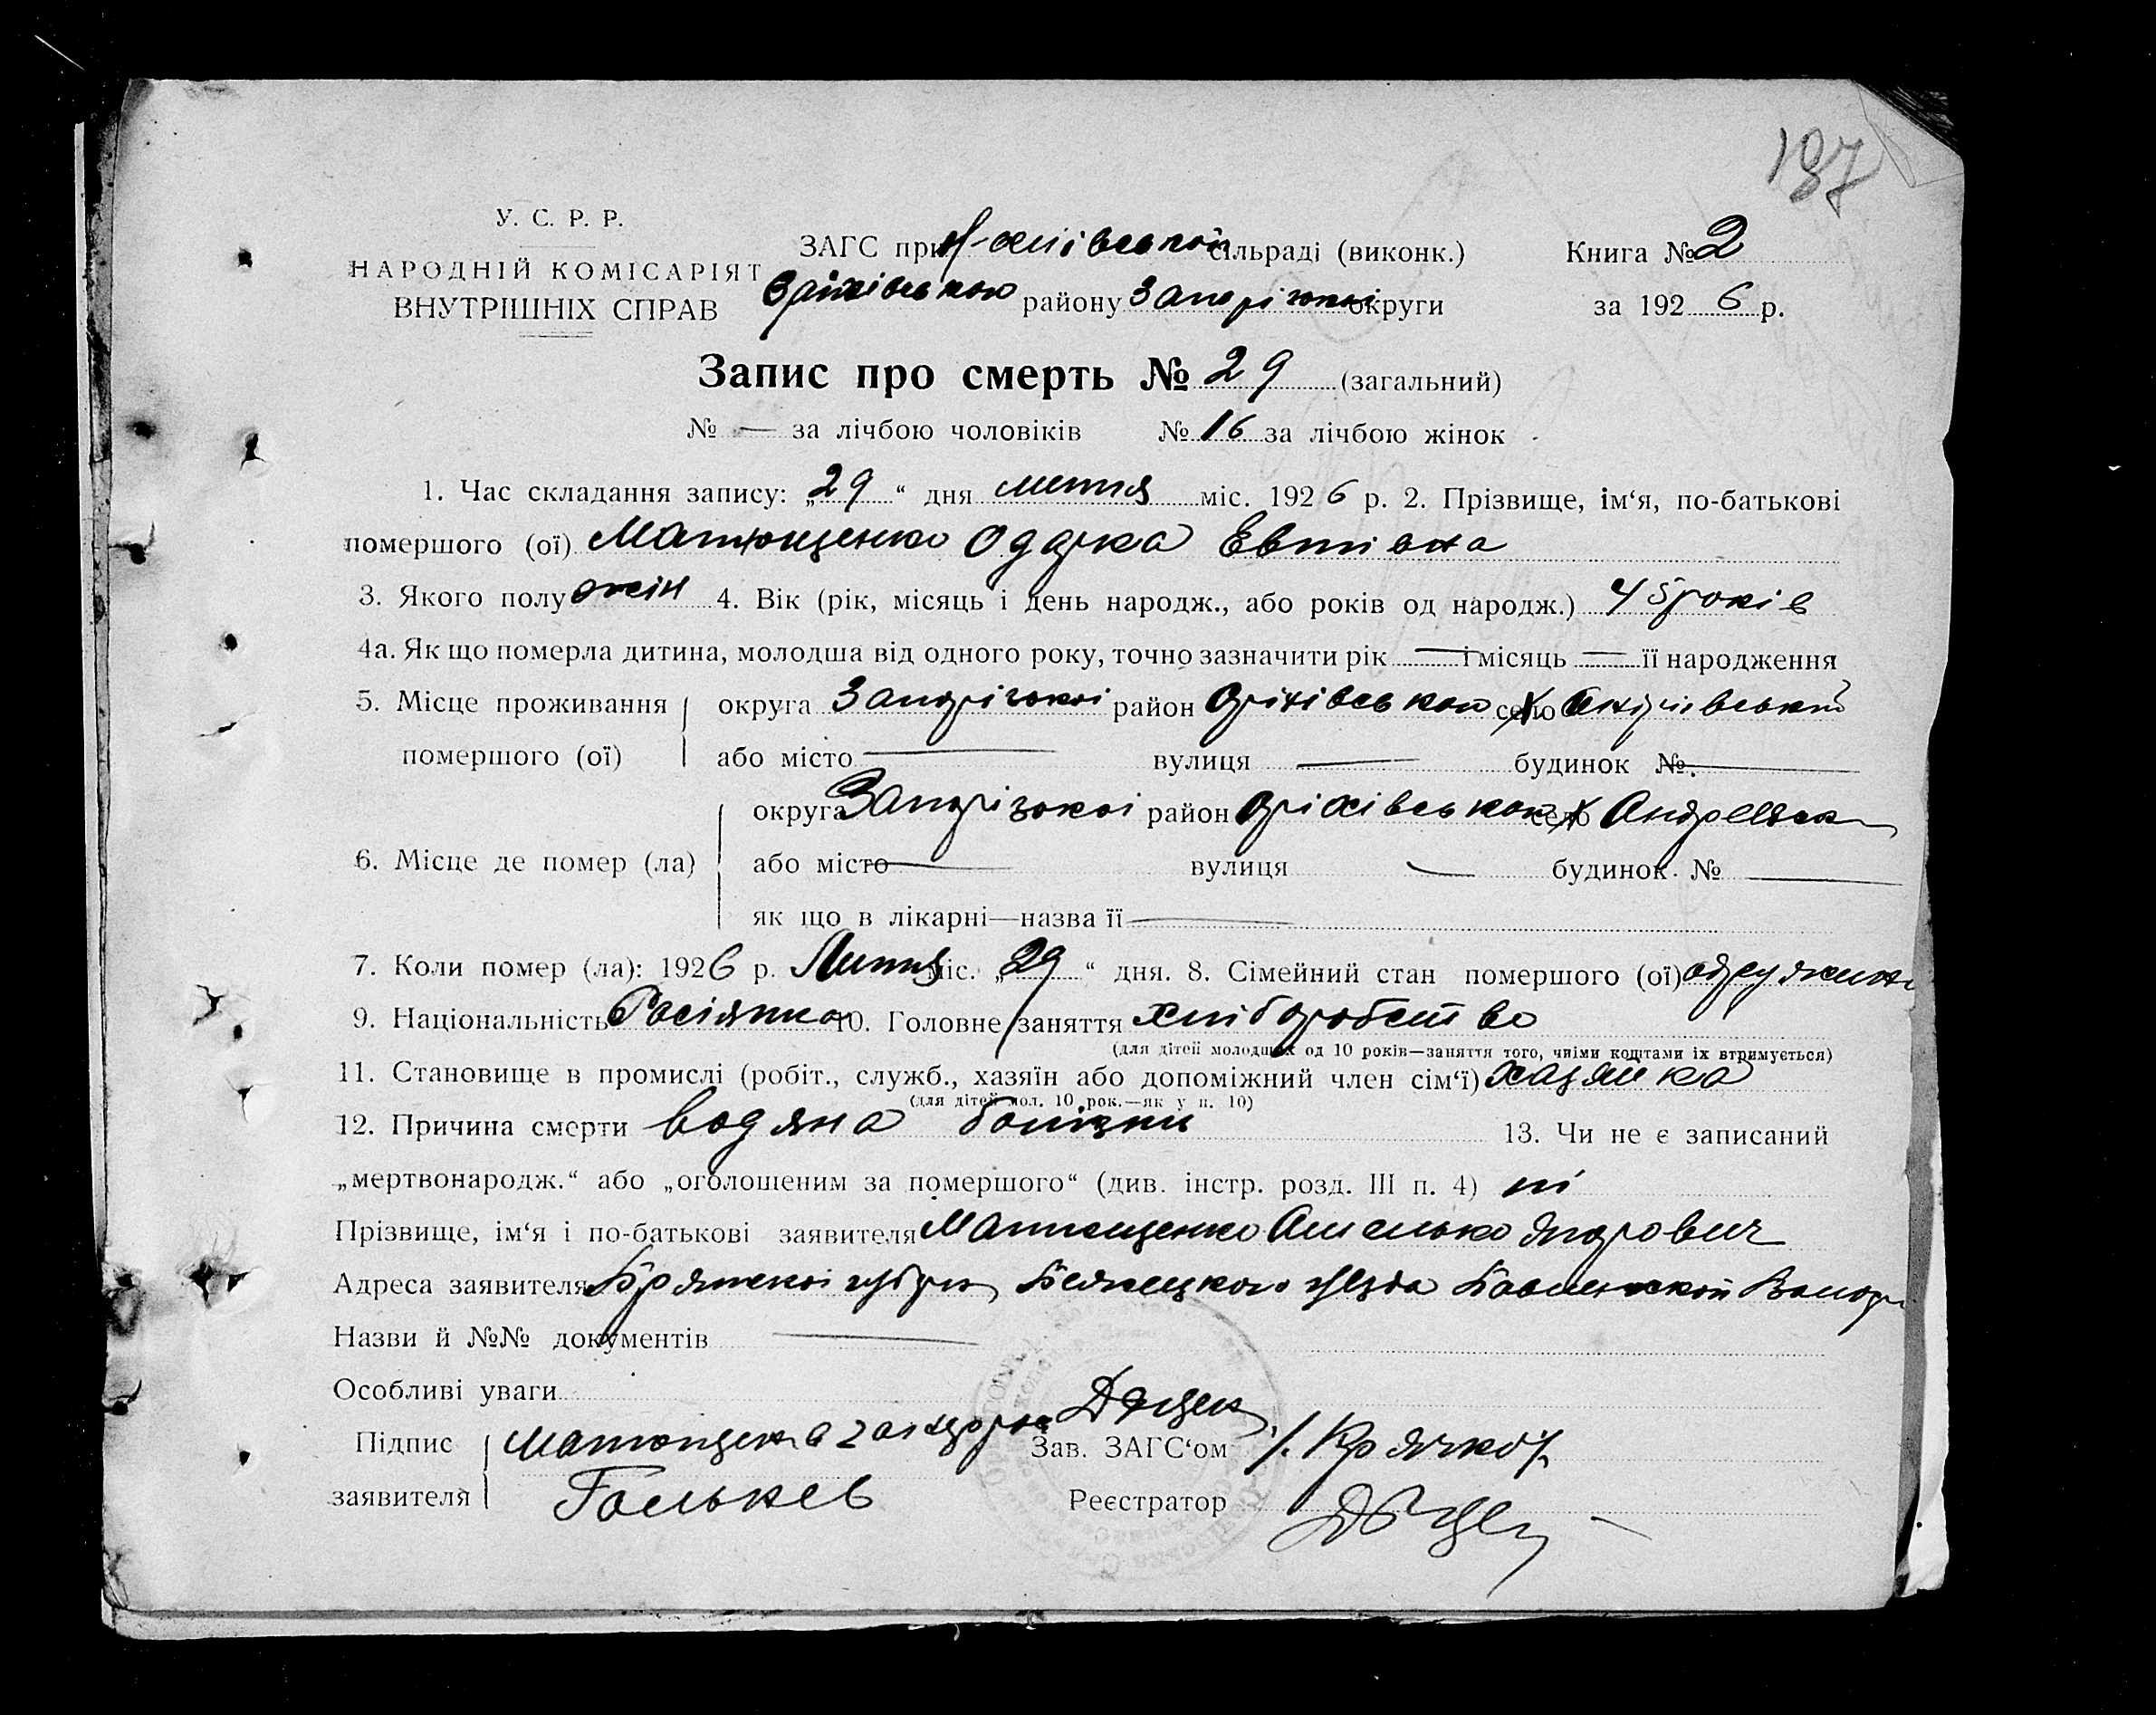 187
У. С. Р. Р.
НАРОДНІЙ КОМІСАРІЯТ
ВНУТРІШНІХ СПРАВ
ЗАГС при сільраді (виконк.)
Оріхівською району Запорізької округи
Книга № 2
за 1926 р.
Запис про смерть № 29 (загальний)
№ — за лічбою чоловіків № 16 за лічбою жінок
1. Час складання запису: „29“ дня липня міс. 1926 р. 2. Прізвище, ім‘я, по-батькові
помершого (ої) Матющенко Одарка
3. Якого полу жін 4. Вік (рік, місяць і день народж., або років од народж.) 45 років
4а. Як що померла дитина, молодша від одного року, точно зазначити рік — і місяць — її народження
5. Місце проживання помершого (ої)
округа Запорізької район Оріхівською село х Андріївський
або місто — вулиця — будинок № —
6. Місце де помер (ла)
округа Запорізької район Оріхівською село х
або місто — вулиця — будинок № —
як що в лікарні—назва її —
7. Коли помер (ла): 1926 р. Липня міс. „29“ дня. 8. Сімейний стан помершого (ої)
9. Національність Росіянка 10. Головне заняття хліборобство
(для дітей молодших од 10 років—заняття того, чиїми коштами їх втримується)
11. Становище в промислі (робіт., служб., хазяїн або допоміжний член сім‘ї) хазяйка
(для дітей мол. 10 рок.—як у п. 10)
12. Причина смерти водяна 13. Чи не є записаний
„мертвонародж.“ або „оголошеним за помершого“ (див. інстр. розд. III п. 4) ні
Прізвище, ім‘я і по-батькові заявителя Матющенко
Адреса заявителя Брянської уезда
Назви й №№ документів —
Особливі уваги
Підпис заявителя
Зав. ЗАГС‘ом /. Крячко /.
Реєстратор